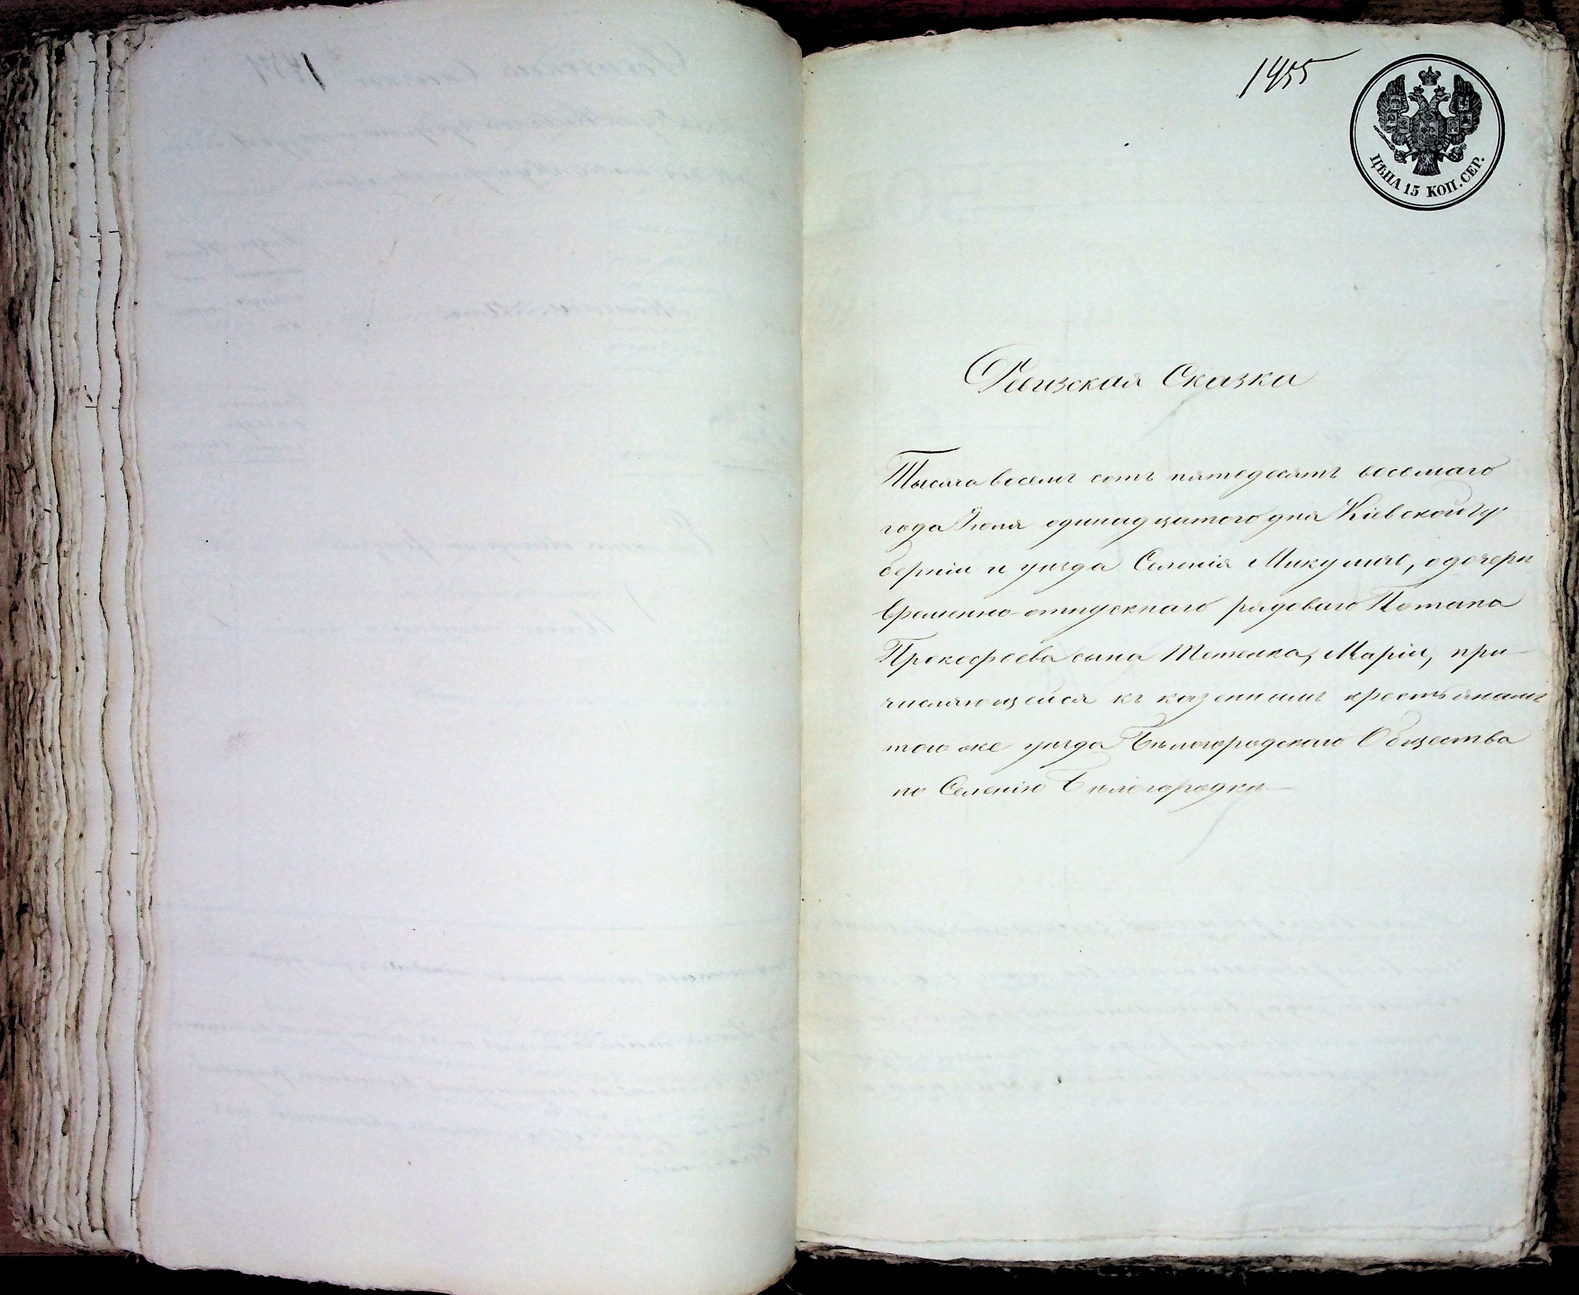 1455
ЦѢНА 15 КОП. СЕР.
Ревизская Сказка
Тысяча восемь сотъ пятьдесятъ осьмаго
года Іюня одинадцатого дня Кіевской гу-
берніи и уѣзда Селенія Микуличь, о дочери
временно-отпускнаго рядоваго Потапа
Прокофѣева сына Тетели, Маріи, при-
числяющейся къ казеннымъ крестьянамъ
того же уѣзда Бѣлогородского Общества
по Селенію Бѣлогородки